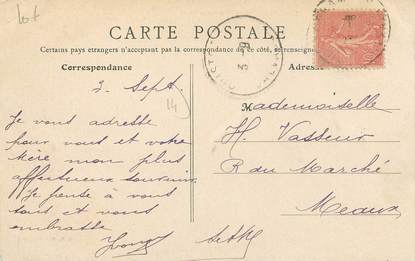 lot
CARTE POSTALE
Certains pays étrangers n'acceptant pas la correspondance de ce côté, se renseigner
Correspondance
Adresse
3 Sept.
14
Je vous adresse
pour vous et votre
Mère mon plus
affectueux souvenir.
Je pense à vous
tous et vous
embrasse
Mademoiselle
H. Vasseur
R du Marché
Meaux